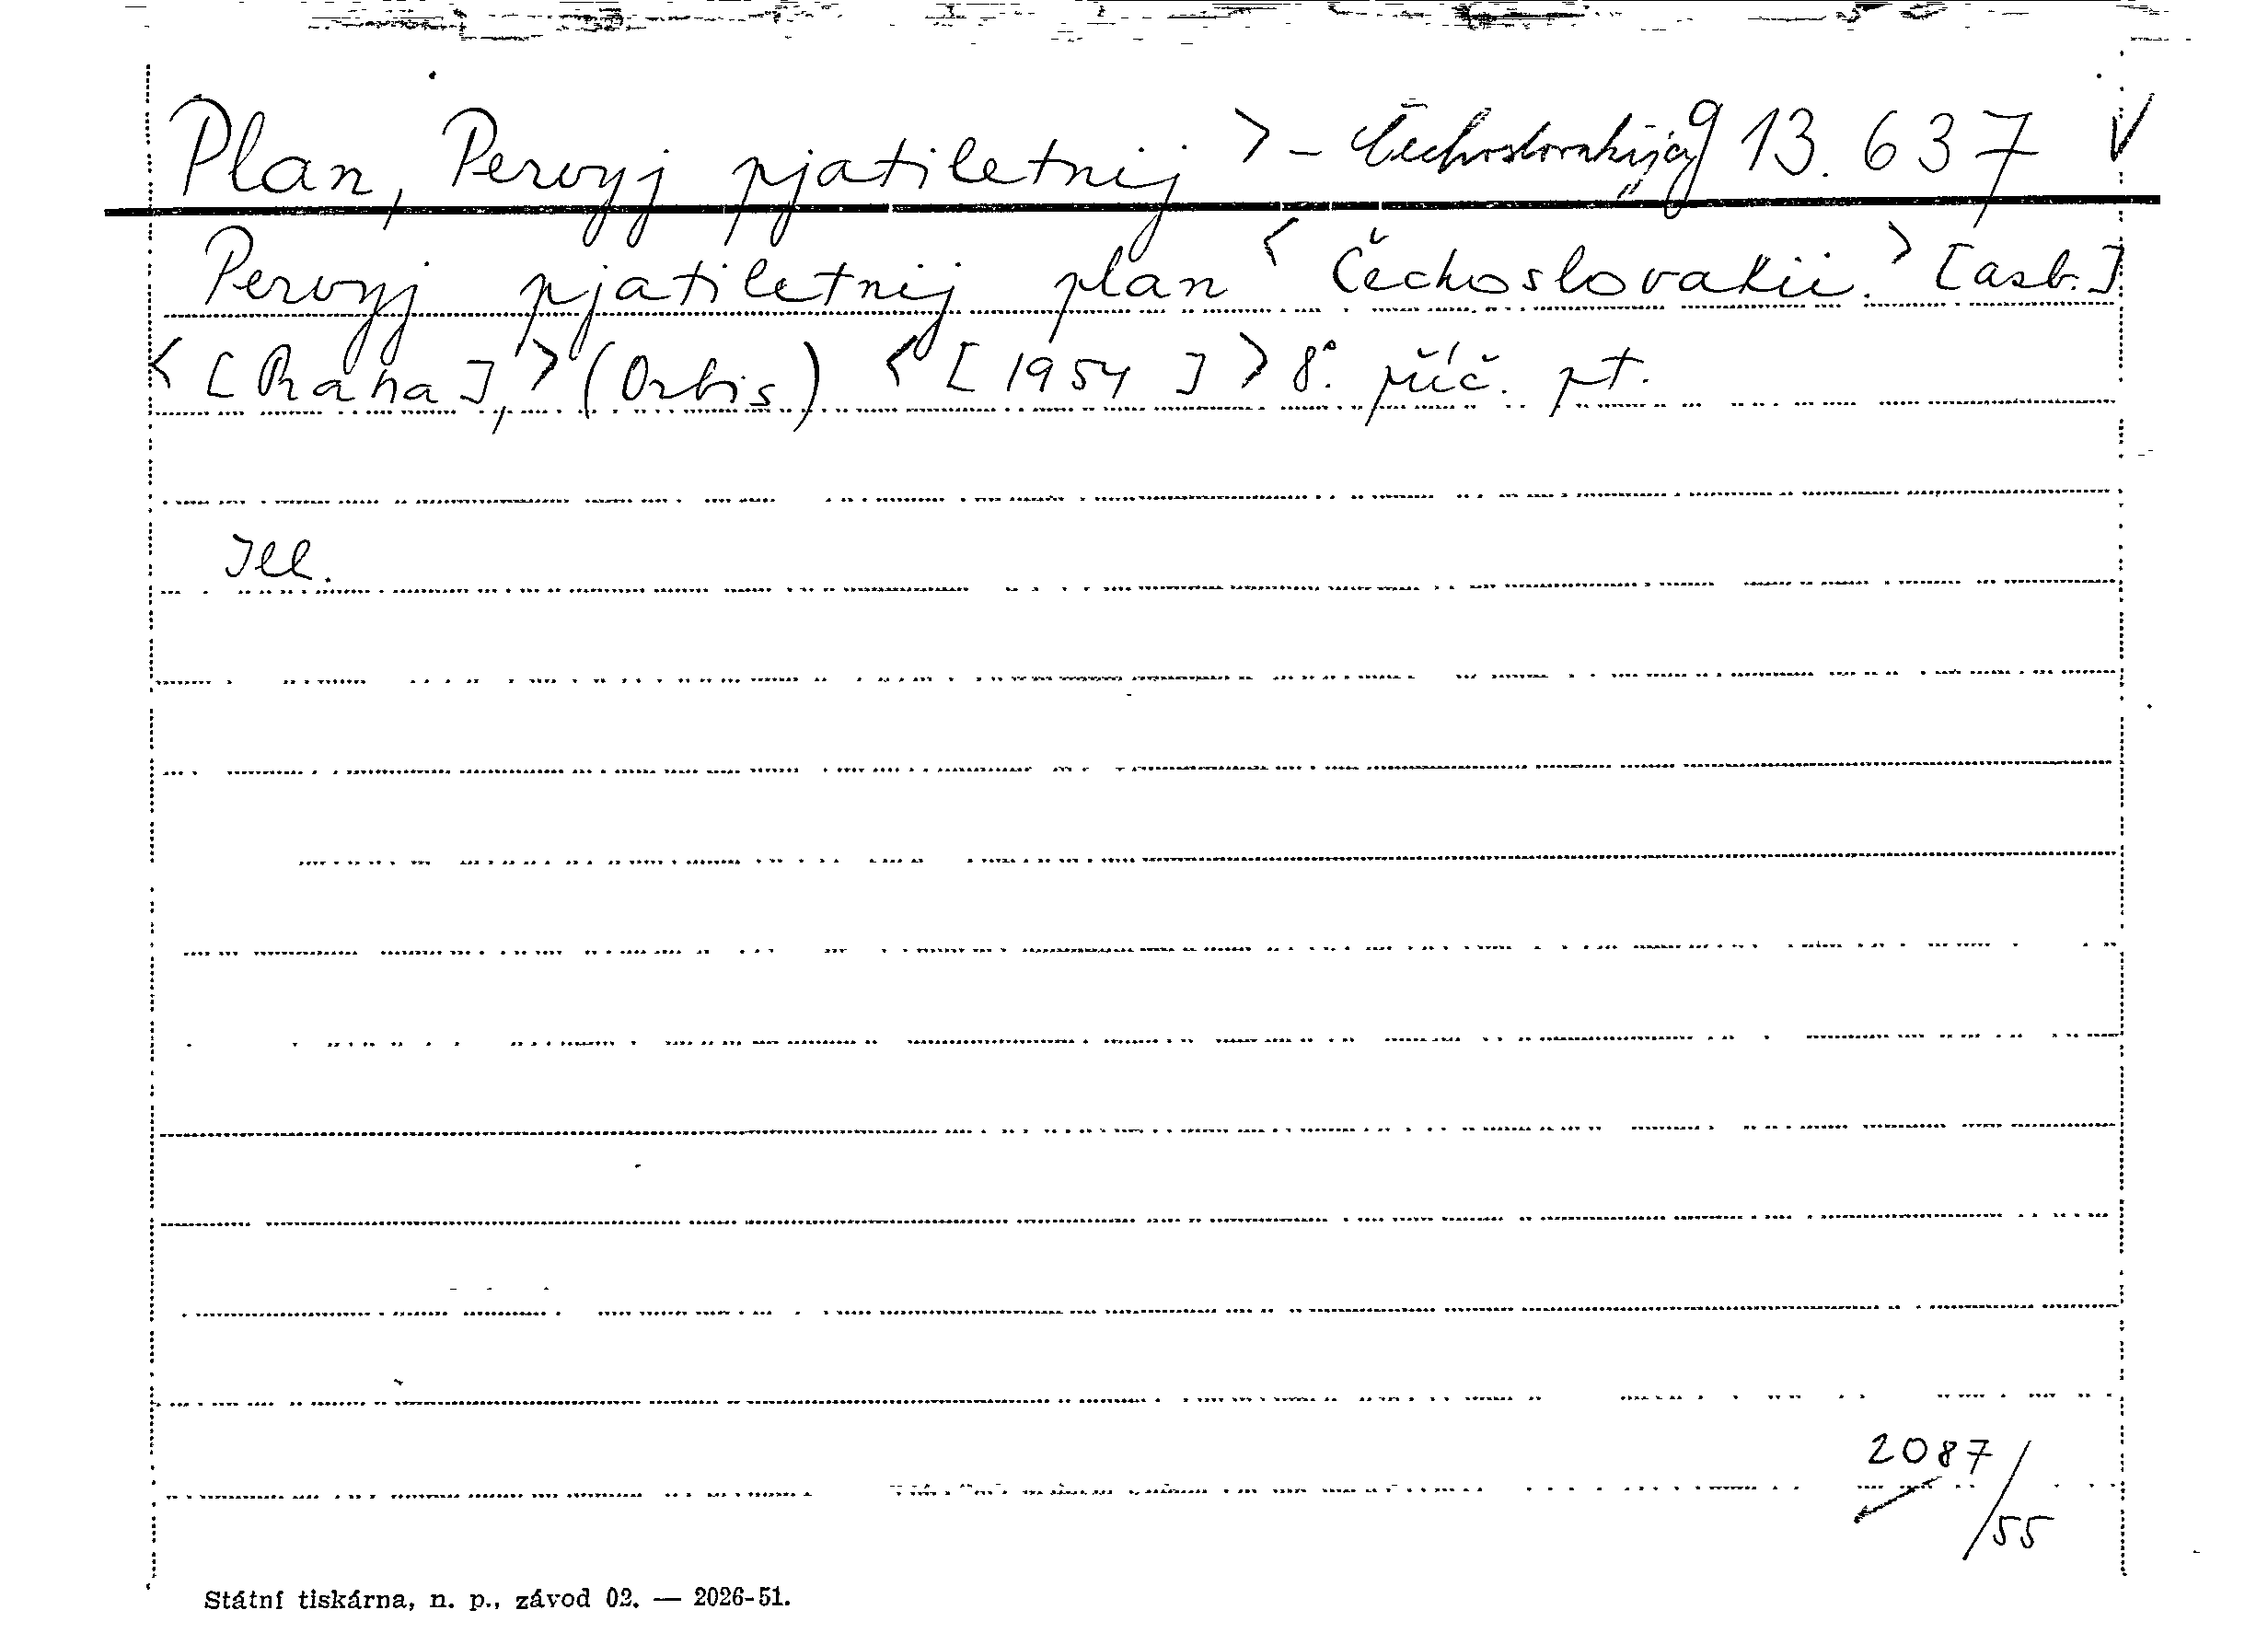 Plan, Pervyj pjatiletnij > - Čechoslovakija g 13.637 V
Pervyj pjatiletnij plan < Čechoslovakii. > [asb.]
< [Praha], > (Orbis) < [1954] > 8°. příč. pt.
Ill.
2087/55
Státní tiskárna, n. p., závod 02. — 2026-51.